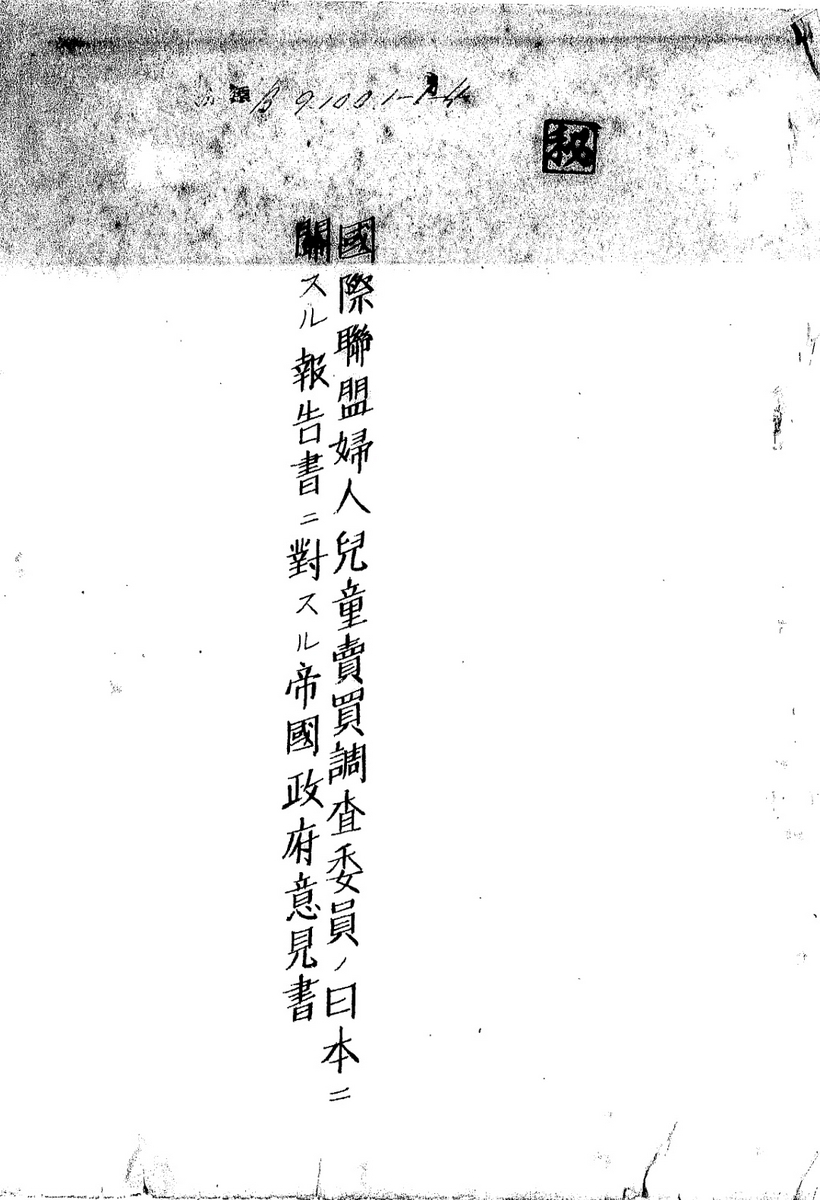 B 9.10.0.1-1-4
秘
國際聯盟婦人兒童賣買調査委員ノ日本ニ
關スル報告書ニ對スル帝國政府意見書